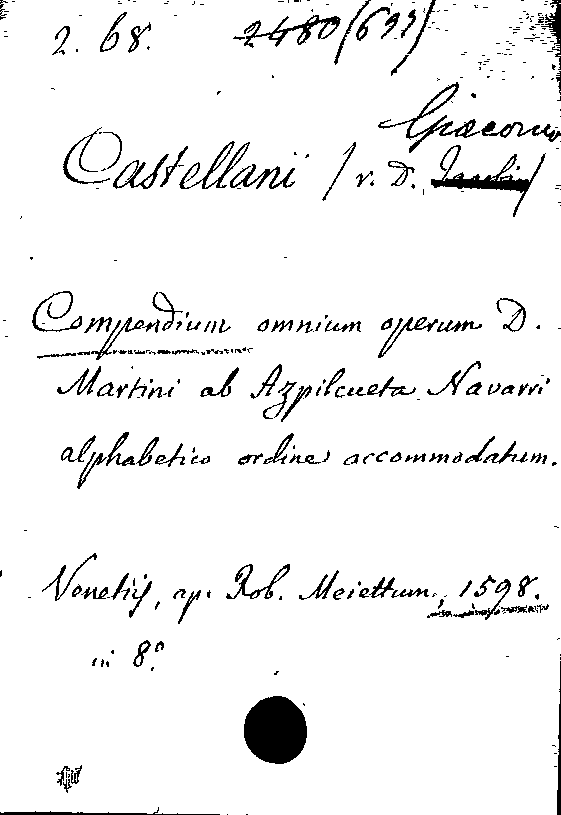 2. 68. 2480 (697)
Giacomo
Castellani / v. D.
Compendium omnium operum D.
Martini ab Azpilcueta Navarri
alphabetico ordine accommodatum.
Venetijs, ap. Rob. Meiettum, 1598.
in 8°.